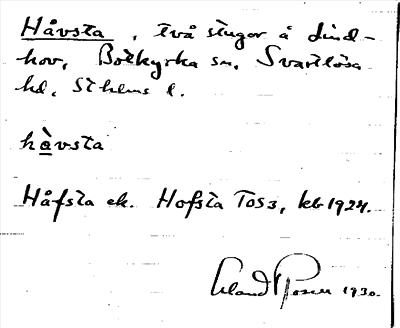 Håvsta, två stugor å Lind-
hov, Botkyrka sn, Svartlösa
hd, Sthlms l.
hàvsta
Håfsta ek. Hofsta Tos3, kb 1924.
Erland Rosell 1930.